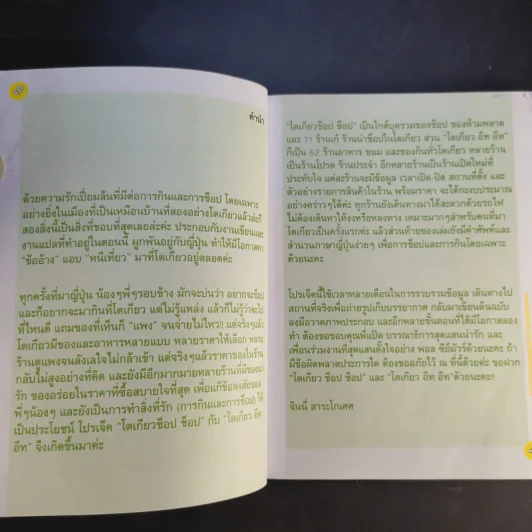 คำนำ
ด้วยความรักเปี่ยมล้นที่มีต่อการกินและการช็อป โดยเฉพาะ
อย่างยิ่งในเมืองที่เป็นเหมือนบ้านที่สองอย่างโตเกียวแล้วล่ะก็
สองสิ่งนี้เป็นสิ่งที่ชอบที่สุดเลยล่ะค่ะ ประกอบกับงานเขียนและ
งานแปลที่ทำอยู่ในตอนนี้ ผูกพันอยู่กับญี่ปุ่น ทำให้มีโอกาสหา
"ข้ออ้าง" แอบ "หนีเที่ยว" มาที่โตเกียวอยู่ตลอดค่ะ
ทุกครั้งที่มาญี่ปุ่น น้องๆพี่ๆรอบข้าง มักจะบ่นว่า อยากจะช็อป
และก็อยากจะมากินที่โตเกียว แต่ไม่รู้แหล่ง แล้วก็ไม่รู้ว่าจะไป
ที่ไหนดี แถมของที่เห็นก็ "แพง" จนจ่ายไม่ไหว!! แต่จริงๆแล้ว
โตเกียวมีของและอาหารหลายแบบ หลายราคาให้เลือก หลาย
ร้านดูแพงจนลังเลใจไม่กล้าเข้า แต่จริงๆแล้วราคาของในร้าน
กลับไม่สูงอย่างที่คิด และยังมีอีกมากมายหลายร้านที่มีของน่า
รัก ของอร่อยในราคาที่ซื้อสบายใจที่สุด เพื่อแก้ข้อสงสัยของ
พี่ๆน้องๆ และยังเป็นการทำสิ่งที่รัก (การกินและการช็อป) ให้
เป็นประโยชน์ โปรเจ็ค "โตเกียวช็อป ช็อป" กับ "โตเกียว อีท
อีท" จึงเกิดขึ้นมาค่ะ
"โตเกียวช็อป ช็อป" เป็นไกด์บุครวมของช็อป ของห้ามพลาด
และ 71 ร้านเก๋ ร้านน่าช็อปในโตเกียว ส่วน "โตเกียว อีท อีท"
ก็เป็น 62 ร้านอาหาร ขนม และของกินทั่วโตเกียว หลายร้าน
เป็นร้านโปรด ร้านประจำ อีกหลายร้านเป็นร้านเปิดใหม่ที่
ประทับใจ แต่ละร้านจะมีข้อมูล เวลาเปิด-ปิด สถานที่ตั้ง และ
ตัวอย่างรายการสินค้าในร้าน พร้อมราคา จะได้กะงบประมาณ
อย่างคร่าวๆได้ค่ะ ทุกร้านยังเดินทางมาได้สะดวกด้วยรถไฟ
ไม่ต้องเดินหาให้งงหรือหลงทาง เหมาะมากๆสำหรับคนที่มา
โตเกียวเป็นครั้งแรกค่ะ แล้วส่วนท้ายของเล่มยังมีคำศัพท์และ
สำนวนภาษาญี่ปุ่นง่ายๆ เพื่อการช็อปและการกินโดยเฉพาะ
ด้วยนะคะ
โปรเจ็คนี้ใช้เวลาหลายเดือนในการรวบรวมข้อมูล เดินทางไป
สถานที่จริงเพื่อถ่ายรูปเก็บบรรยากาศ กลับมาเขียนต้นฉบับ
ลงมือวาดภาพประกอบ และอีกหลายขั้นตอนที่ได้มีโอกาสลอง
ทำ ต้องขอขอบคุณพี่แป๊ด บรรณาธิการสุดแสนน่ารัก และ
เพื่อนร่วมงานที่สุดแสนดั่งใจอย่าง พอล ซียีมัวร์ด้วยนะคะ ถ้า
มีข้อผิดพลาดประการใด ต้องขออภัยไว้ ณ ที่นี้ด้วยค่ะ ขอฝาก
"โตเกียว ช็อป ช็อป" และ "โตเกียว อีท อีท"ด้วยนะคะ!
จินนี่ สาระโกเศศ